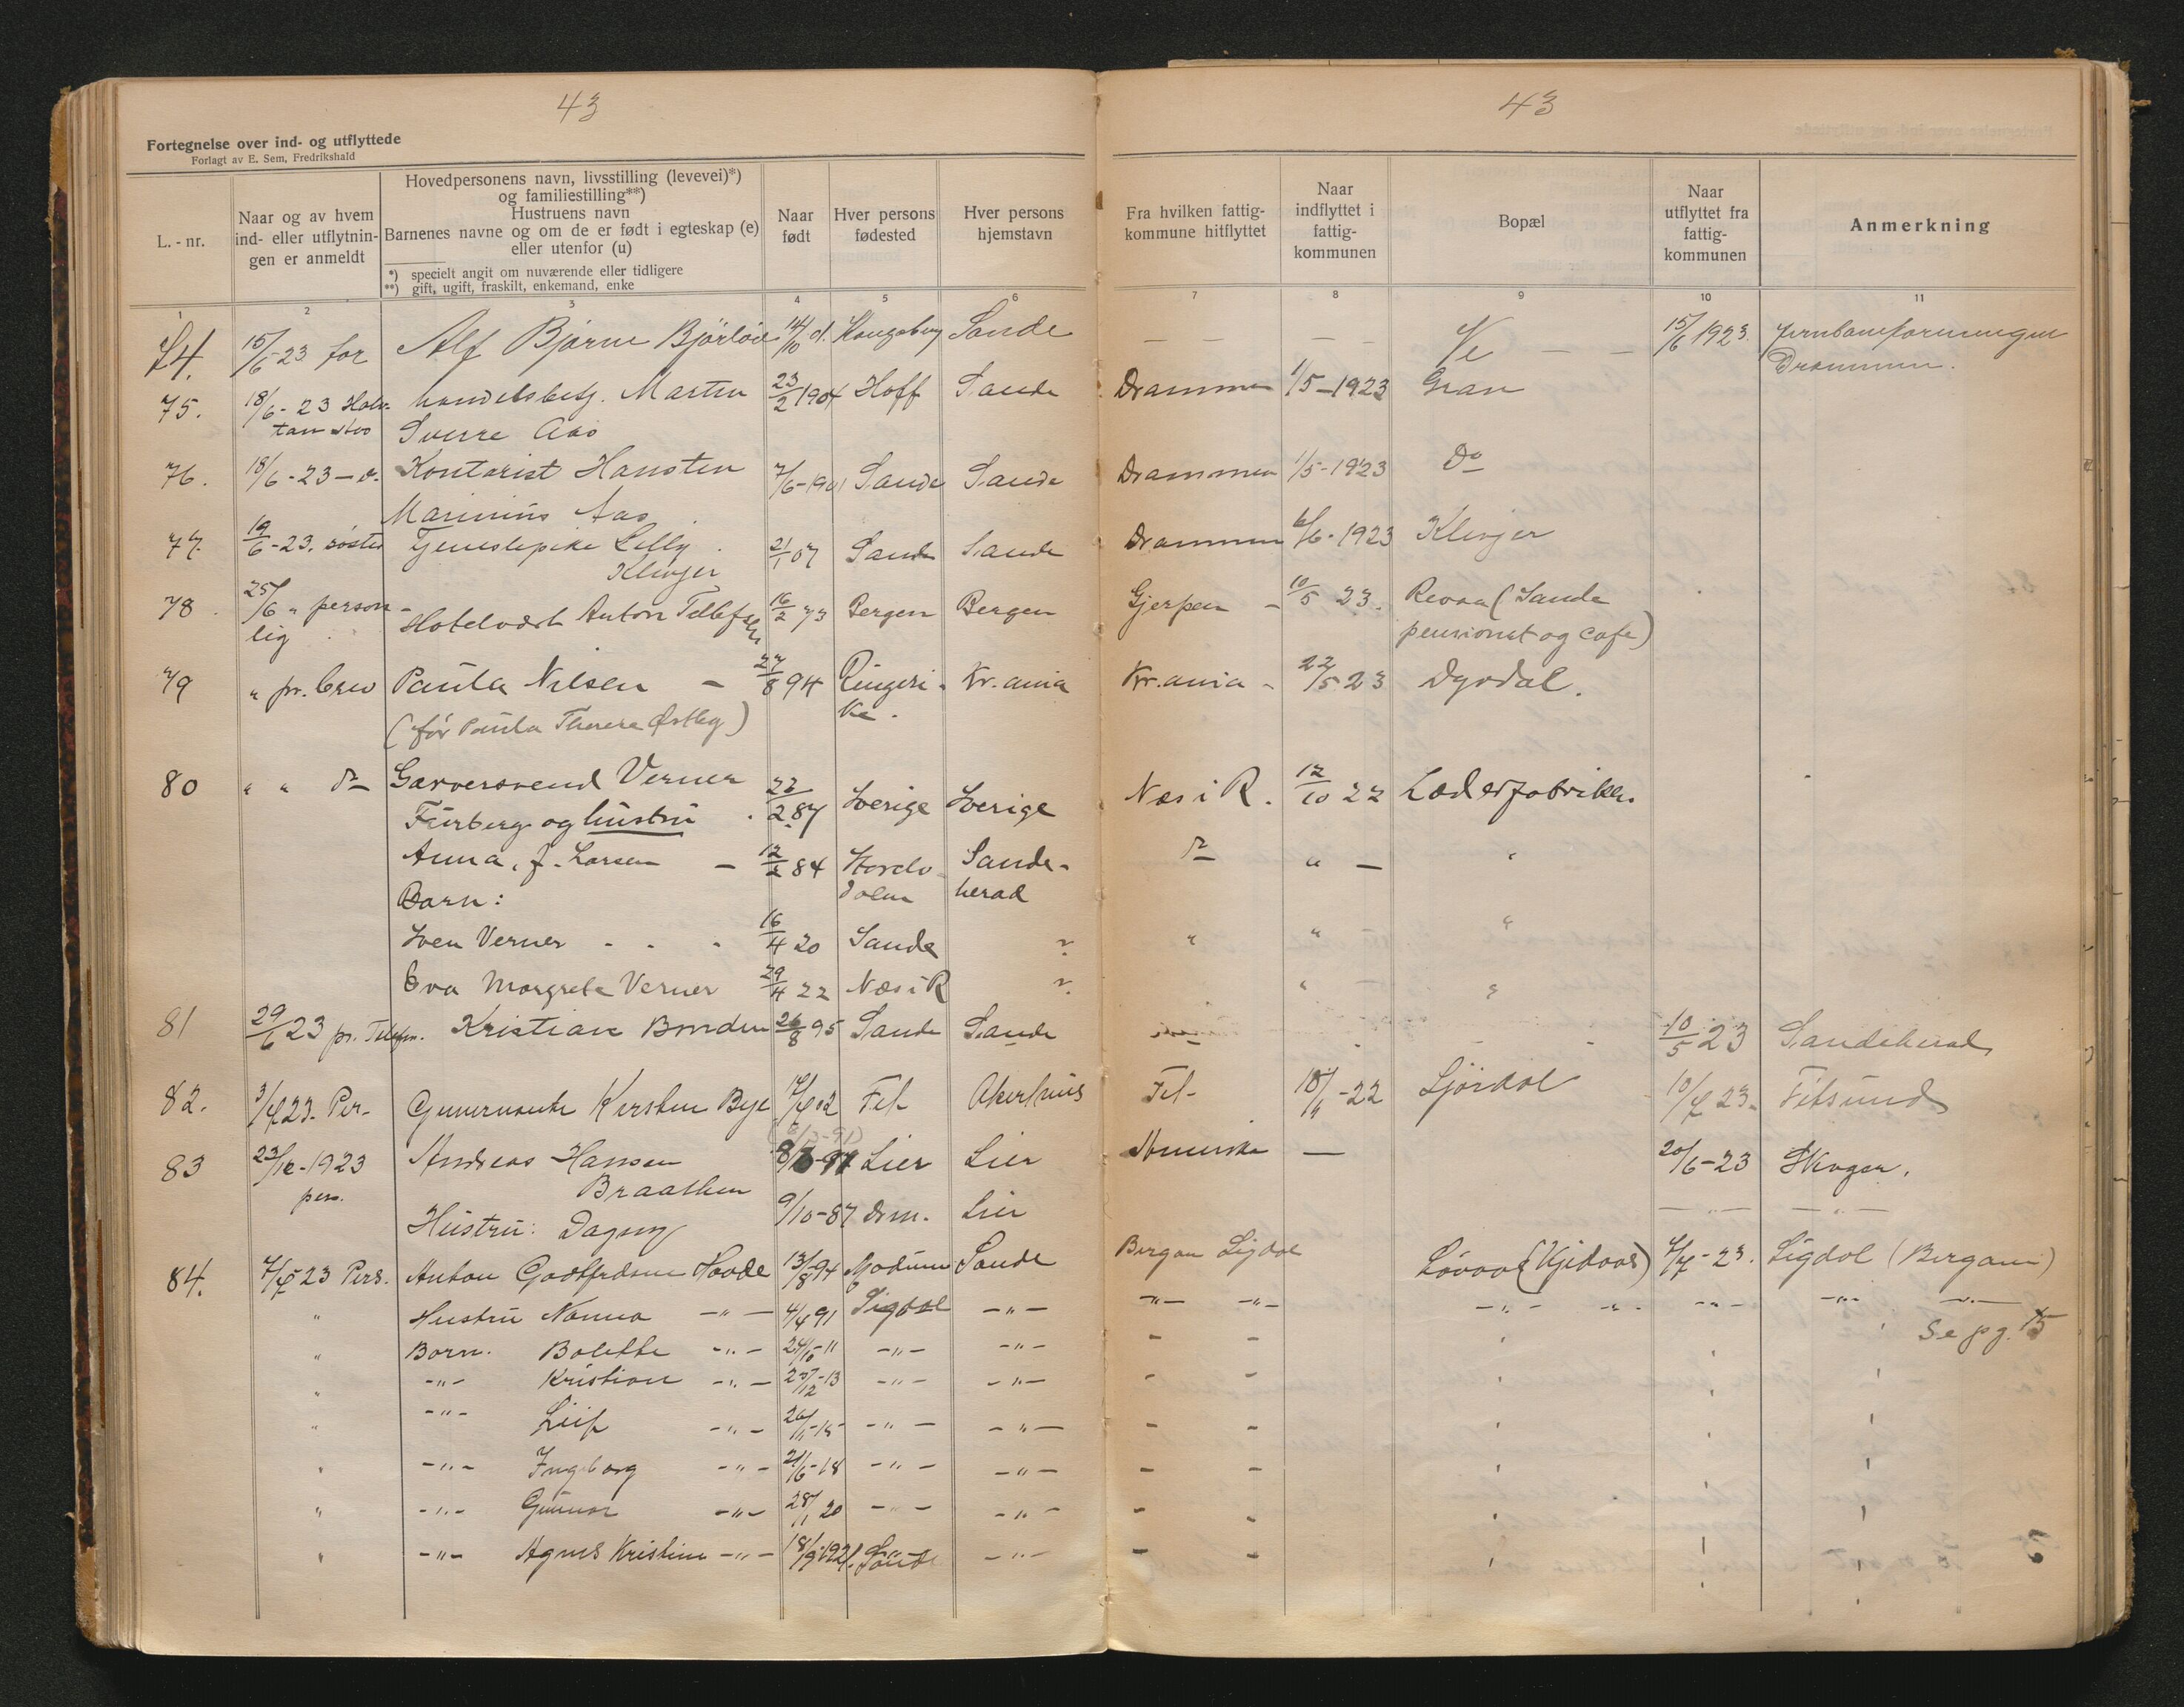 43
43
Fortegnelse over ind- og utflyttede
Forlagt av E. Sem, Fredrikshald
L.-nr.
Naar og av hvem
ind- eller utflytnin-
gen er anmeldt
Hovedpersonens navn, livsstilling (levevei)*)
og familiestilling**)
Hustruens navn
Barnenes navne og om de er født i egteskap (e)
eller utenfor (u)
*) specielt angit om nuværende eller tidligere
**) gift, ugift, fraskilt, enkemand, enke
Naar
født
Hver persons
fødested
Hver persons
hjemstavn
Fra hvilken fattig-
kommune hitflyttet
Naar
indflyttet i
fattig-
kommunen
Bopæl
Naar
utflyttet fra
fattig-
kommunen
Anmerkning
1 2 3 4 5 6 7 8 9 10 11
74. 15/6-23 for Alf Bjarne 14/10 Kongsberg Sande — — — — Ve — — 15/6 1923.
Drammen.
75. 18/6-23 handelsbetj. Martin 23/2 1904 Hoff Sande Drammen 1/5-1923 Gran
Sverre Aas
76. 18/6-23 Kontorist Hansten 7/6-1901 Sande Sande Drammen 1/5-1923 Do
Marinius Aas
77. 19/6-23. søster Tjenestepike Lilly 21/1 07 Sande Sande Drammen 6/6-1923 Klinger
Klinger
78. 25/6 " person- Hotelvært Anton Tellefsen 16/2 73 Bergen Bergen Gjerpen - 10/5 23. Revaa (Sande
lig pensionat og cafe)
79 " pr. brev Paula Nilsen — 27/8 94 Ringeri- Kr.ania Kr.ania - 22/5 23 Dyrdal.
(før Paula Østby) ke.
80 " " do Garversvend Verner 22/2 87 Sverige Sverige Næs i R. 12/10 22 Læderfabrikken
og hustru
Anna, f. Larsen — 84 Sande- do " — "
Barn: herad
Sven Verner - - - 16/4 20 Sande ? " " "
Eva Margrete Verner 29/4 22 Næs i R ? " - "
81 29/6 23 pr. Telefon. Kristian 26/8 95 Sande Sande 10/5 23 Sandeherad
82. 3/7 23. Per- Guvernante Kirsten Bye 02 Fet Akershus Fet - -22 10/7 23. Fetsund
83 1923 Andreas Hansen Lier Lier Amerika — 20/6-23 Skoger.
pers. Braathen
Hustru: Dagny 9/10-87 Drm. Lier — " — — " —
84. 7/7 23 Pers. Anton 13/8 94 Modum Sande Bergan Sigdal 7/7-23. Sigdal (Bergan)
" Hustru Nanna — " — 4/4 91 Sigdal — " — — " — — " — — " — — " — — " — — " —
Se pg. 15
" Barn. Bolette — " — 24/10-11 — " — — " —
" — " — Kristian — " — 13 — " — — " —
" — " — Leif — " — — " — — " —
" — " — Ingeborg — " — 21/6-18 — " — — " —
" — " — Gunnar — " — 28/1 20 — " — — " —
" — " — Agnes Kristine — " — 18/9 1921. Sande — " —